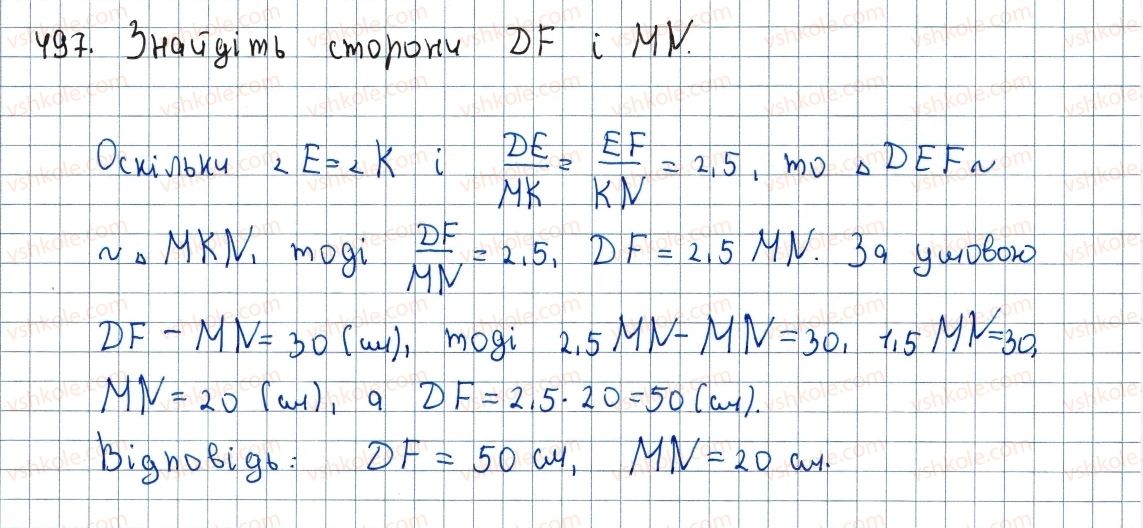 497. Знайдіть сторони DF і MN.
Оскільки ∠E=∠K і DE/MK = EF/KN = 2,5, то △DEF~
~△MKN, тоді DF/MN = 2,5, DF = 2,5 MN. За умовою
DF - MN = 30 (см), тоді 2,5 MN - MN = 30, 1,5 MN=30,
MN = 20 (см), а DF = 2,5·20=50 (см).
Відповідь: DF = 50 см, MN = 20 см.